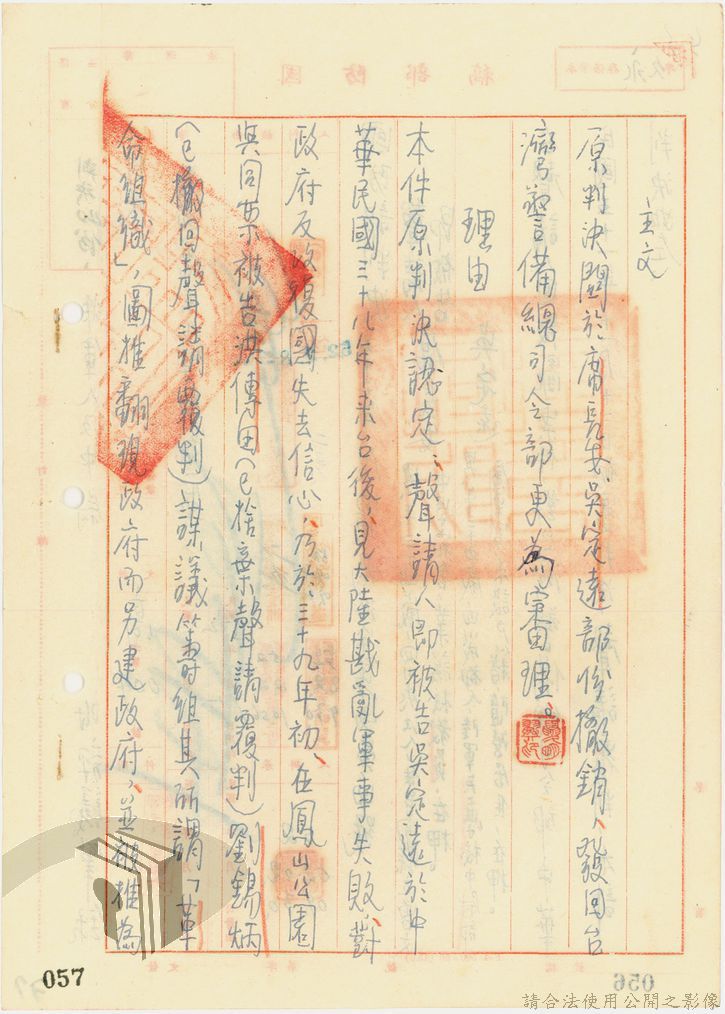 主文
原判決關於席長安吳定遠部份撤銷,發回台
灣警備總司令部更為審理。
理由
本件原判決認定、聲請人即被告吳定遠於中
華民國三十八年來台後,見大陸戡亂軍事失敗,對
政府反攻復國失去信心,乃於三十九年初、在鳳山公園
與同案被告洪傳田(已捨棄聲請覆判)劉錫炳
(已撤回聲請覆判)謀議籌組其所謂「革
命組織」,圖推翻現政府而另建政府,並被推為
057
056
請合法使用公開之影像